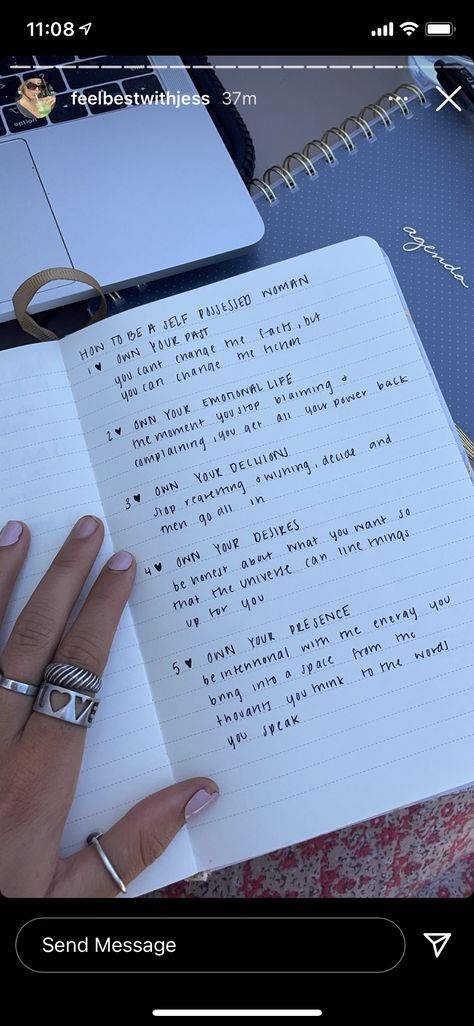 11:08
feelbestwithjess 37m
option
agenda
HOW TO BE A SELF POSSESSED WOMAN
1 ♥ OWN YOUR PAST
you cant change the facts, but
you can change the fiction
2 ♥ OWN YOUR EMOTIONAL LIFE
the moment you stop blaiming +
complaining, you get all your power back
3 ♥ OWN YOUR DECISIONS
stop regretting + wishing, decide and
then go all in
4 ♥ OWN YOUR DESIRES
be honest about what you want so
that the universe can line things
up for you
5 ♥ OWN YOUR PRESENCE
be intentional with the energy you
bring into a space from the
thoughts you think to the words
you speak
LOVE
Send Message